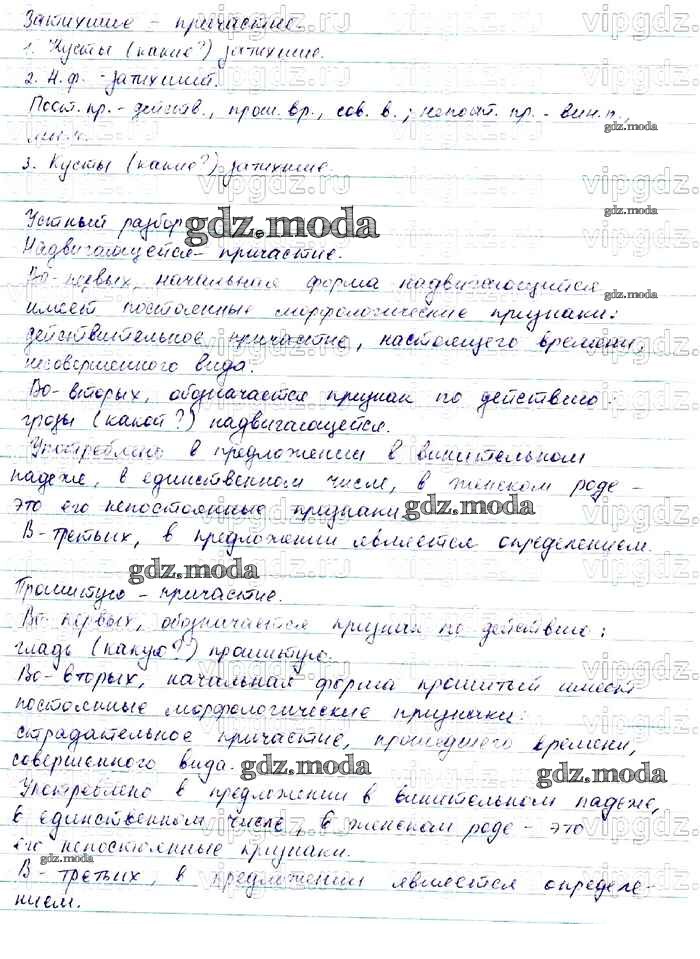 Затихшие - причастие.
1. Кусты (какие?) затихшие.
2. Н.ф. - затихший.
Пост. пр. - действ., прош. вр., сов. в.; непост. пр. - вин. п.,
мн.ч.
3. Кусты (какие?) затихшие.
Устный разбор
Надвигающейся - причастие.
Во-первых, начальная форма надвигающийся
имеет постоянные морфологические признаки:
действительное причастие, настоящего времени,
несовершенного вида.
Во-вторых, обозначается признак по действию:
грозы (какой?) надвигающейся.
Употреблено в предложении в винительном
падеже, в единственном числе, в женском роде -
это его непостоянные признаки.
В-третьих, в предложении является определением.
Прошитую - причастие.
Во-первых, обозначается признак по действию:
гладь (какую?) прошитую.
Во-вторых, начальная форма прошитый имеет
постоянные морфологические признаки:
страдательное причастие, прошедшего времени,
совершенного вида.
Употреблено в предложении в винительном падеже,
в единственном числе, в женском роде - это
его непостоянные признаки.
В-третьих, в предложении является определе-
нием.
vipgdz.ru
gdz.moda